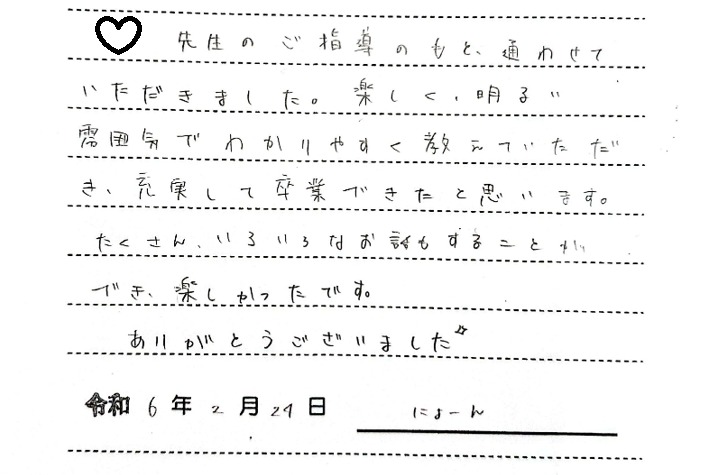 ♡ 先生のご指導のもと、通わせて
いただきました。楽しく、明るい
雰囲気でわかりやすく教えていただ
き、充実して卒業できたと思います。
たくさん、いろいろなお話もすることが
でき、楽しかったです。
ありがとうございました☆
令和 6 年 2 月 29 日 にょーん